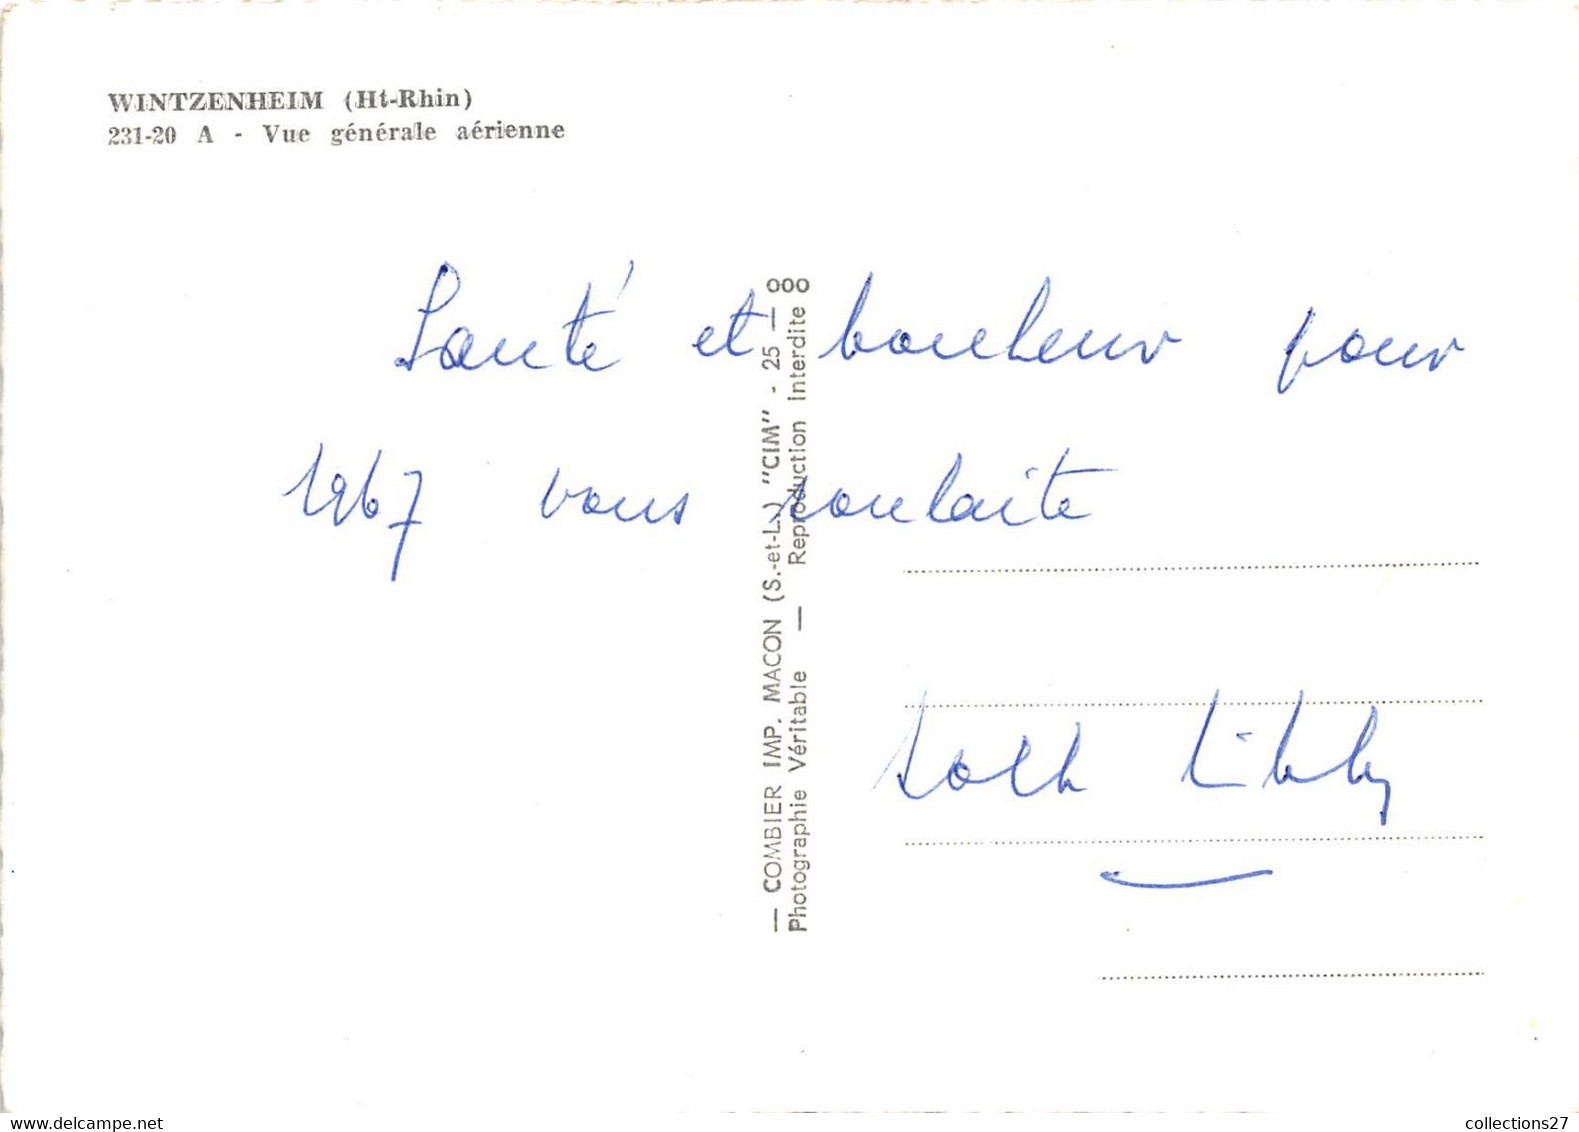 WINTZENHEIM (Ht-Rhin)
231-20 A - Vue générale aérienne
Santé et bonheur pour
1967 vous souhaite
— COMBIER IMP. MACON (S.-et-L.) "CIM" - 25 —
Photographie Véritable — Reproduction Interdite
delcampe.net
collections27